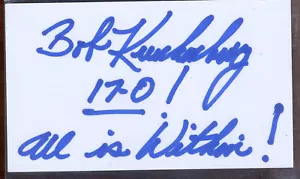 Bob Kuechenberg
17-0!
All is Within!